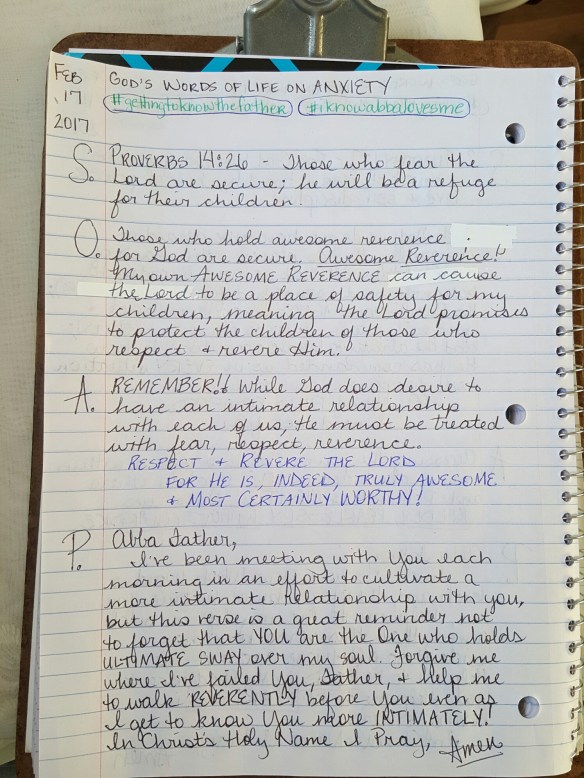 FEB
17
2017
GOD'S WORDS OF LIFE ON ANXIETY
#gettingtoknowthefather #iknowabbalovesme
S. PROVERBS 14:26 - Those who fear the
Lord are secure; he will be a refuge
for their children.
O. Those who hold awesome reverence
for God are secure. Awesome Reverence!
My own AWESOME REVERENCE can cause
the Lord to be a place of safety for my
children, meaning "the Lord promises
to protect the children of those who
respect & revere Him."
A. REMEMBER!! While God does desire to
have an intimate relationship
with each of us, He must be treated
with fear, respect, reverence.
RESPECT + REVERE THE LORD
FOR HE IS, INDEED, TRULY AWESOME
& MOST CERTAINLY WORTHY!
P. Abba Father,
I've been meeting with You each
morning in an effort to cultivate a
more intimate relationship with you,
but this verse is a great reminder not
to forget that YOU are the One who holds
ULTIMATE SWAY over my soul. Forgive me
where I've failed You, Father, & help me
to walk REVERENTLY before You even as
I get to know You more INTIMATELY!
In Christ's Holy Name I Pray, Amen